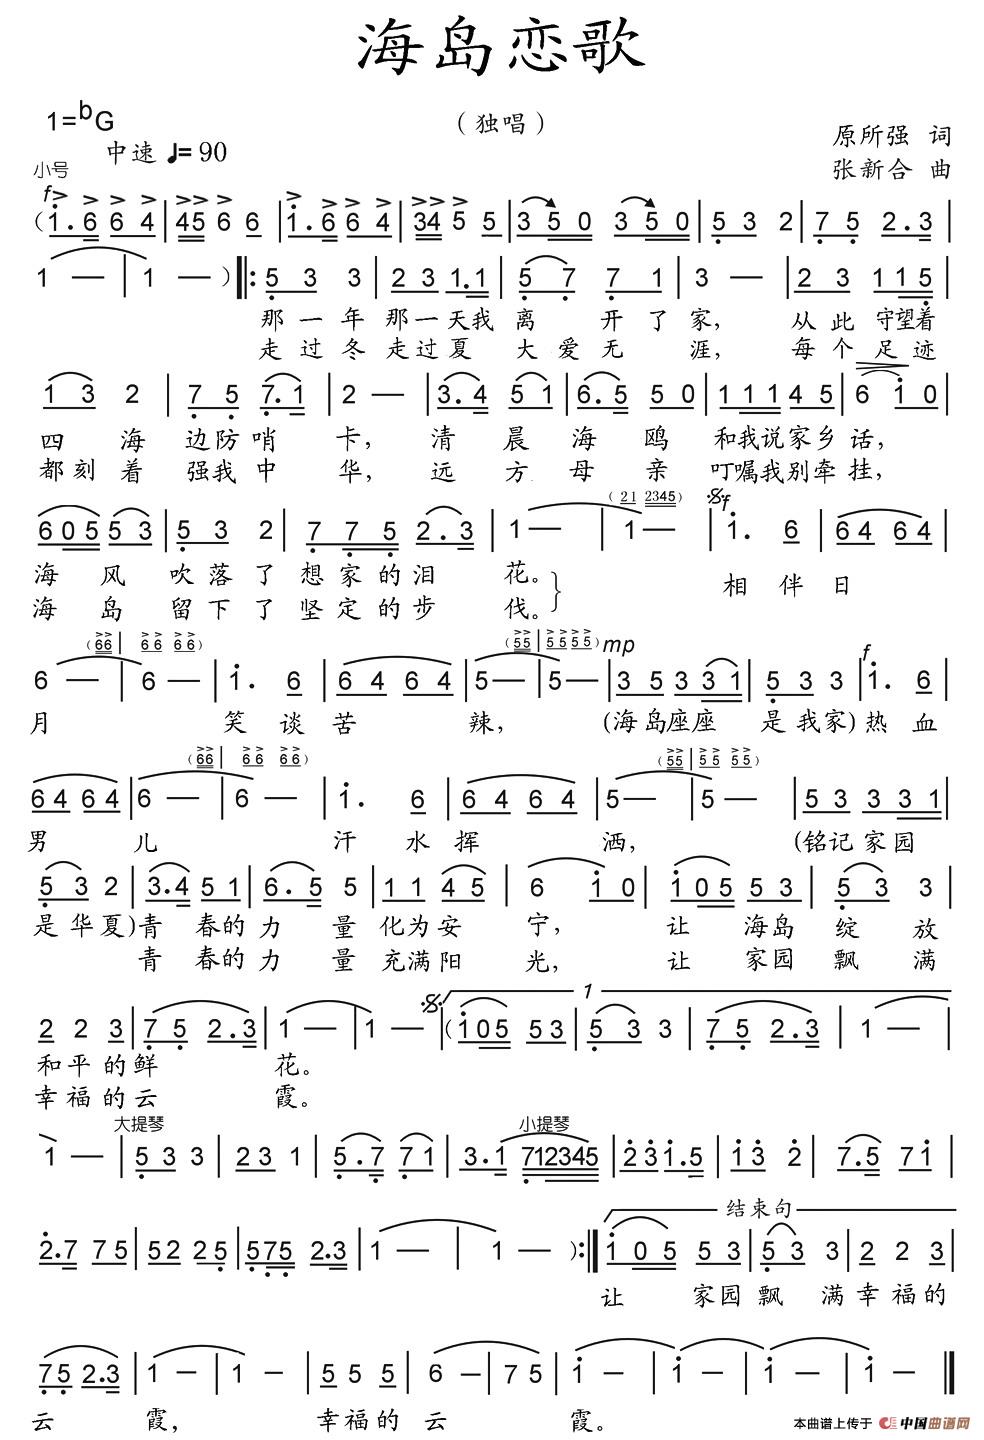 海岛恋歌
1=bG
（独唱）
原所强 词
中速 ♩= 90
张新合 曲
小号
f
(i.6 6 4 | 45 6 6 | i.6 6 4 | 34 5 5 | 3 5 0 3 5 0 | 5 3 2 | 7 5 2.3 |
1 — | 1 — ) ‖: 5 3 3 | 2 3 1.1 | 5 7 7 1 | 3 — | 2 3 1 1 5 |
那一年 那一天我 离 开了家, 从此 守望着
走过冬 走过夏 大爱无 涯, 每个 足迹
1 3 2 | 7 5 7.1 | 2 — | 3.4 5 1 | 6.5 5 0 | 1 1 1 4 5 | 6 i 0 |
四 海 边防哨 卡, 清 晨 海 鸥 和我说家乡 话,
都刻 着 强我中 华, 远 方 母 亲 叮嘱我别牵 挂,
(21 2345) 𝄋f
6 0 5 5 3 | 5 3 2 | 7 7 5 2.3 | 1 — | 1 — | i. 6 | 6 4 6 4 |
海 风 吹落了 想家的泪 花。 相 伴日
海 岛 留下了 坚定的步 伐。
(66 | 66 66) (55 | 55 55) mp f
6 — | 6 — | i. 6 | 6 4 6 4 | 5 — | 5 — | 3 5 3 3 1 | 5 3 3 | i. 6 |
月 笑 谈 苦 辣, (海岛座座 是我家) 热 血
(66 | 66 66) (55 | 55 55)
6 4 6 4 | 6 — | 6 — | i. 6 | 6 4 6 4 | 5 — | 5 — | 5 3 3 3 1 |
男 儿 汗 水 挥 洒, (铭记家园
5 3 2 | 3.4 5 1 | 6.5 5 | 1 1 4 5 | 6 i 0 | i 0 5 5 3 | 5 3 3 |
是华夏)青 春的力 量 化为安 宁, 让 海岛 绽 放
青 春的力 量 充满阳 光, 让 家园 飘 满
𝄋 1
2 2 3 | 7 5 2.3 | 1 — | 1 — | (i 0 5 5 3 | 5 3 3 | 7 5 2.3 | 1 — |
和平的鲜 花。
幸福的云 霞。
大提琴 小提琴
1 — | 5 3 3 | 2 3 1 | 5.7 7 1 | 3.1 712345 | 2 3 1.5 | i 3 2 | 7.5 7 i |
结束句
2.7 7 5 | 5 2 2 5 | 5 7 5 2.3 | 1 — | 1 — ) :‖ i 0 5 5 3 | 5 3 3 | 2 2 3 |
让 家园飘 满幸福的
7 5 2.3 | 1 — | 1 — | 5 5 5 | 6 — | 7 5 | i — | i — | i — | i — ‖
云 霞, 幸福的 云 霞。
本曲谱上传于 中国曲谱网